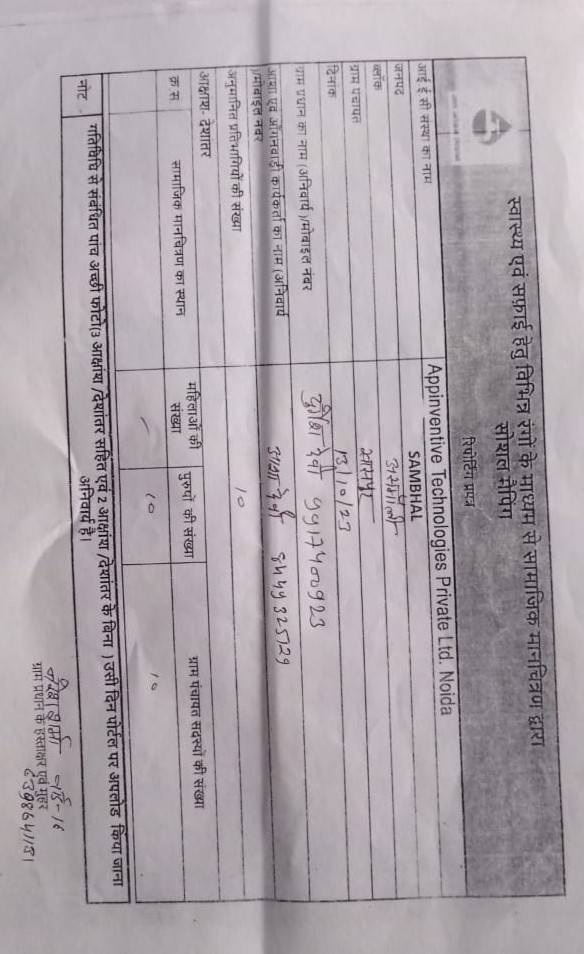 स्वास्थ्य एवं सफाई हेतु विभिन्न रंगो के माध्यम से सामाजिक मानचित्रण द्वारा
सोशल मैपिंग
रिपोर्टिंग प्रपत्र
आई ई सी संस्था का नाम Appinventive Technologies Private Ltd. Noida
जनपद SAMBHAL
ब्लॉक असमोली
ग्राम पंचायत
दिनांक 13/10/23
ग्राम प्रधान का नाम (अनिवार्य )/मोबाइल नंबर देवी 9917400923
आशा एवं आँगनवाड़ी कार्यकर्ता का नाम (अनिवार्य
)/मोबाइल नंबर देवी 8449325729
अनुमानित प्रतिभागियों की संख्या 10
आक्षांश- देशान्तर
क्र स सामाजिक मानचित्रण का स्थान महिलाओं की संख्या पुरुषों की संख्या ग्राम पंचायत सदस्यों की संख्या
– 10 10
नोट - गतिविधि से संबंधित पांच अच्छी फोटो(3 आक्षांश /देशांतर सहित एवं 2 आक्षांश /देशांतर के बिना ) उसी दिन पोर्टल पर अपलोड किया जाना
अनिवार्य है।
ग्राम प्रधान के हस्ताक्षर एवं मुहर